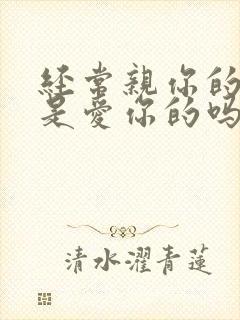 经常親你的
是愛你的吗
清水濯青蓮